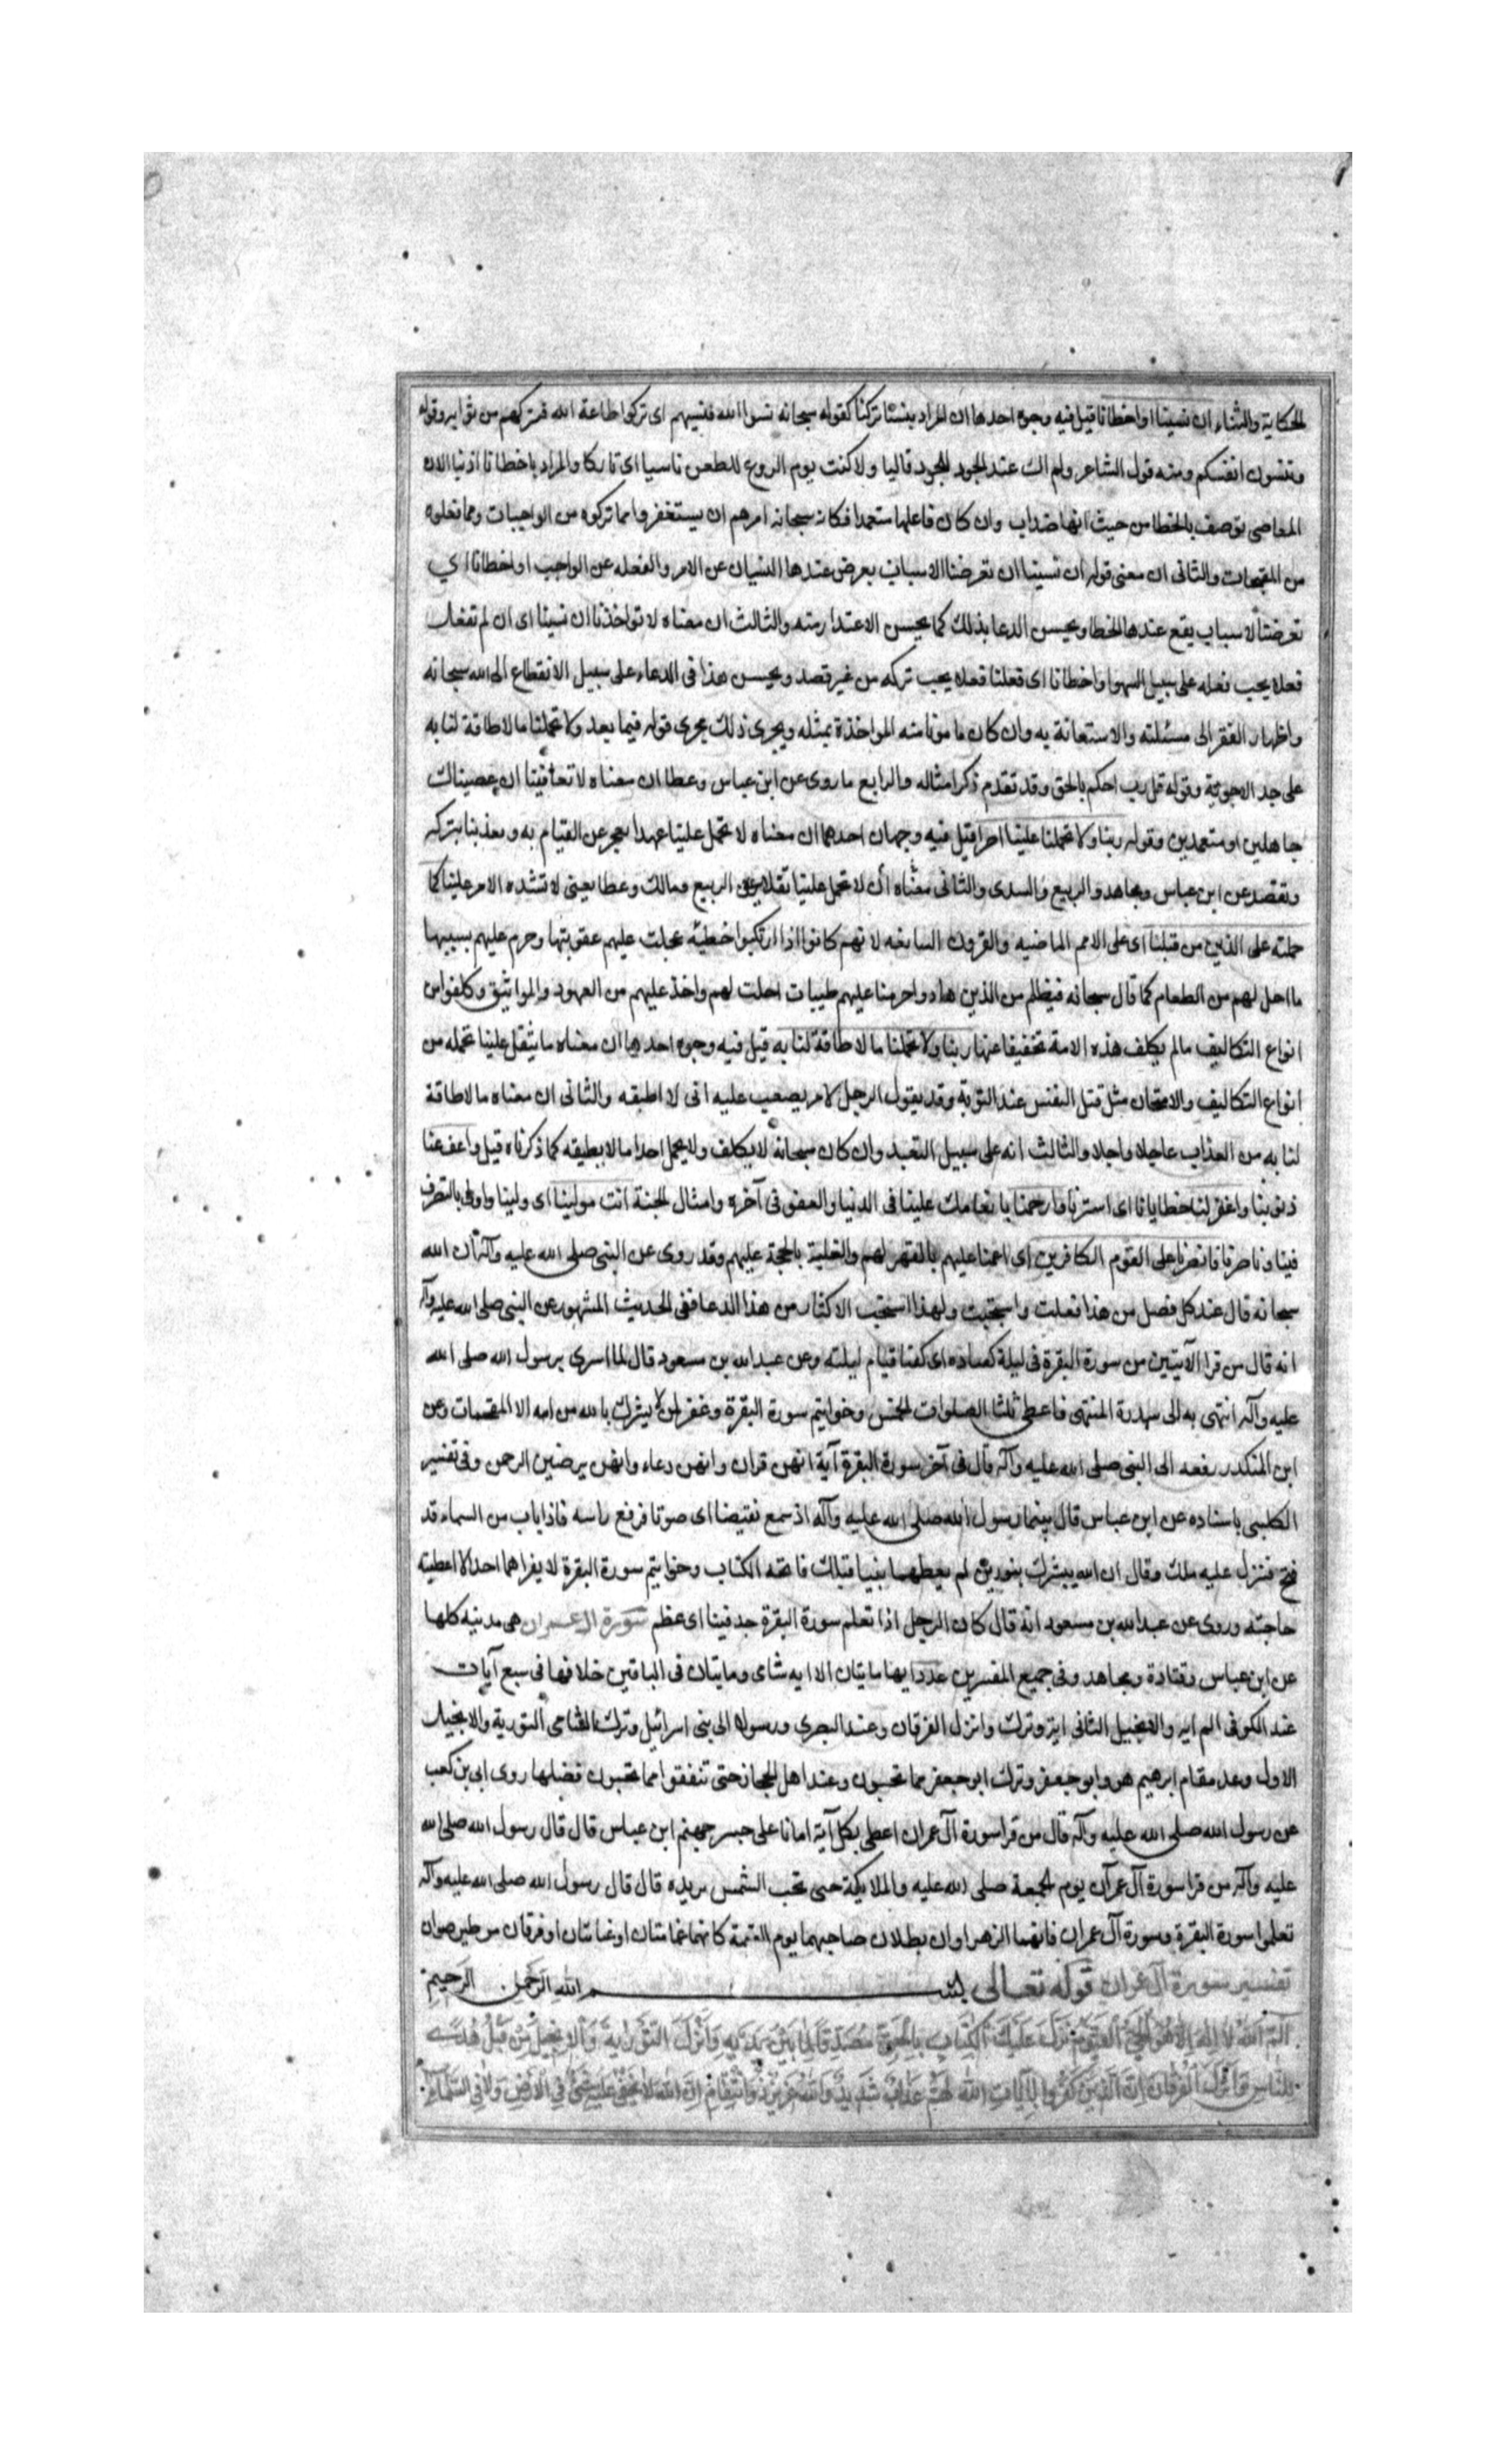 الحكاية والثناء ان نسينا او اخطانا قيل فيه وجوه احدها ان المراد بنسينا تركنا كقوله سبحانه نسوا الله فنسيهم اى تركوا طاعة الله فتركهم من ثوابه وقوله
وتنسون انفسكم ومنه قول الشاعر ولم اك عند الجود للجود قاليا ولا كنت يوم الروع للطعن ناسيا اى تاركا والمراد باخطانا اذنبنا لان
المعاصى توصف بالخطا من حيث انها ضد الصواب وان كان فاعلها متعمدا فكانه سبحانه امرهم ان يستغفروا مما تركوه من الواجبات ومما فعلوه
من المقبحات والثانى ان معنى قوله ان نسينا ان تعرضنا لاسباب يعرض عندها النسيان عن الامر والغفله عن الواجب او اخطانا اي
تعرضنا لاسباب يقع عندها الخطا ويحسن الدعا بذلك كما يحسن الاعتذار منه والثالث ان معناه لا تواخذنا ان نسينا اى ان لم نفعل
فعلا يجب فعله على سبيل السهو او اخطانا اى فعلنا فعلا يجب تركه من غير قصد ويحسن هذا فى الدعاء على سبيل الانقطاع الى الله سبحانه
واظهار الفقر الى مسئلته والاستعانة به وان كان مامونا منه المواخذة بمثله ويجرى ذلك مجرى قوله فيما بعد ولا تحملنا ما لا طاقة لنا به
على احد الاجوبة وقوله قل رب احكم بالحق وقد تقدم ذكر امثاله والرابع ما روى عن ابن عباس وعطا ان معناه لا تعاقبنا ان عصيناك
جاهلين او متعمدين وقوله ربنا ولا تحمل علينا اصرا قيل فيه وجهان احدهما ان معناه لا تحمل علينا عهدا نعجز عن القيام به وتعذبنا بتركه
ونقضه عن ابن عباس ومجاهد والربيع والسدى والثانى معناه ان لا تحمل علينا ثقلا عن الربيع ومالك وعطا يعنى لا تشدد الامر علينا كما
حملته على الذين من قبلنا اى على الامم الماضيه والقرون السالفه لانهم كانوا اذا ارتكبوا خطيئه عجلت عليهم عقوبتها وحرم عليهم بسببها
ما احل لهم من الطعام كما قال سبحانه فبظلم من الذين هادوا حرمنا عليهم طيبات احلت لهم واخذ عليهم من العهود والمواثيق وكلفوا من
انواع التكاليف ما لم يكلف هذه الامة تخفيفا عنها ربنا ولا تحملنا ما لا طاقة لنا به قيل فيه وجوه احدها ان معناه ما يثقل علينا تحمله من
انواع التكاليف والامتحان مثل قتل النفس عند التوبة وقد يقول الرجل لامر يصعب عليه انى لا اطيقه والثانى ان معناه ما لا طاقة
لنا به من العذاب عاجلا واجلا والثالث انه على سبيل التعبد وان كان سبحانه لا يكلف ولا يحمل احدا ما لا يطيقه كما ذكرناه قيل واعف عنا
ذنوبنا واغفر لنا خطايانا اى استرنا وارحمنا بانعامك علينا فى الدنيا والعفو فى آخره وامثال الجنة انت مولينا اى ولينا واولى بالتصرف
فينا وناصرنا فانصرنا على القوم الكافرين اى اعنا عليهم بالقهر لهم والغلبة بالحجة عليهم وقد روى عن النبى صلى الله عليه وآله ان الله
سبحانه قال عند كل فصل من هذا فعلت واستجبت ولهذا استحب الاكثار من هذا الدعا ففى الحديث المشهور عن النبى صلى الله عليه وآله
انه قال من قرا الآيتين من سورة البقرة فى ليلة كفتاه اى كفتا قيام ليلته وعن عبد الله بن مسعود قال لما اسرى برسول الله صلى الله
عليه وآله انتهى به الى سدرة المنتهى فاعطى ثلثا الصلوات الخمس وخواتيم سورة البقرة وغفر لمن لا يشرك بالله من امته الا المقحمات وعن
ابن المنكدر رفعه الى النبى صلى الله عليه وآله قال فى آخر سورة البقرة آية انهن قران وانهن دعاء وانهن يرضين الرحمن وفى تفسير
الكلبى باسناده عن ابن عباس قال بينما رسول الله صلى الله عليه وآله اذ سمع نقيضا اى صوتا فرفع راسه فاذا باب من السماء قد
فتح فنزل عليه ملك وقال ان الله يبشرك بنورين لم يعطهما نبيا قبلك فاتحة الكتاب وخواتيم سورة البقرة لا يقراهما احد الا اعطيته
حاجته وروى عن عبد الله بن مسعود انه قال كان الرجل اذا تعلم سورة البقرة جد فينا اى عظم سورة ال عمران هى مدنيه كلها
عن ابن عباس وقتادة ومجاهد وفى جميع المفسرين عدد ايها مايتان الا ايه شاى ومايتان فى الباقين خلافها فى سبع آيات
عند الكوفى الم ايه والانجيل الثانى اية وترك وانزل الفرقان وعند البصرى ورسولا الى بنى اسرائيل وترك الشامى التورية والانجيل
الاول وعد مقام ابرهيم هو وابو جعفر وترك ابو جعفر مما تحبون وعند اهل الحجاز حتى تنفقوا مما تحبون فضلها روى ابى بن كعب
عن رسول الله صلى الله عليه وآله قال من قرا سورة آل عمران اعطى بكل آية امانا على جسر جهنم ابن عباس قال قال رسول الله صلى الله
عليه وآله من قرا سورة آل عمران يوم الجمعة صلى الله عليه والملايكة حتى تجب الشمس بريده قال قال رسول الله صلى الله عليه وآله
تعلموا سورة البقرة وسورة آل عمران فانهما الزهراوان يظلان صاحبهما يوم القيمة كانهما غمامتان او غيايتان او فرقان من طير صواف
تفسير سورة آل عمران قوله تعالى بسم الله الرحمن الرحيم
الم الله لا اله الا هو الحي القيوم نزل عليك الكتاب بالحق مصدقا لما بين يديه وانزل التورية والانجيل من قبل هدى
للناس وانزل الفرقان ان الذين كفروا بآيات الله لهم عذاب شديد والله عزيز ذو انتقام ان الله لا يخفى عليه شئ في الارض ولا في السماء